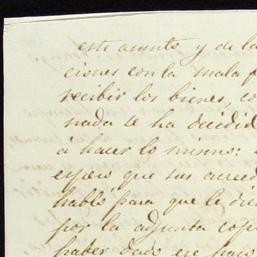 este asunto y de la
ciones con la mala f
recibir los bienes, co
nada le ha decidid
á hacer lo mismo:
espero que sus acreed
habló para que le die
por la adjunta copi
haber dado ese paso